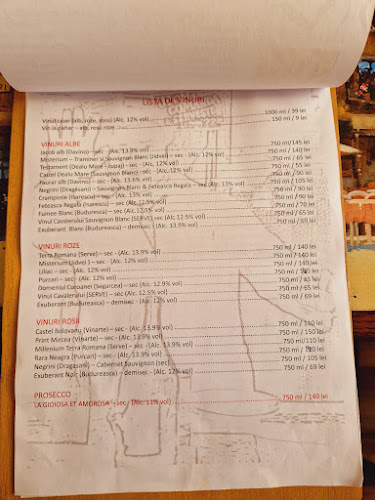 LISTA DE VINURI
Vinul casei (alb, roze, rosu) (Alc. 12% vol) 1000 ml / 39 lei
Vin la pahar – alb, rosu, roze 150 ml / 9 lei
VINURI ALBE
Iacob alb (Davino) – sec – (Alc. 13.9% vol) 750 ml/ 145 lei
Misterium – Traminer si Sauvignon Blanc (Jidvei) – sec - (Alc. 12% vol) 750 ml / 140 lei
Testament (Dealu Mare – sec - (Alc. 12% vol) 750 ml / 65 lei
Castel Dealu Mare (Sauvignon Blanc) – sec - (Alc. 12% vol) 750 ml / 55 lei
Faurar alb (Davino) – sec – (Alc. 13.6% vol) 750 ml / 90 lei
Negrini (Dragasani) – Sauvignon Blanc & Feteasca Regala – sec - (Alc. 13% vol) 750 ml / 105 lei
Cramposie (Isarescu) – sec - (Alc. 13% vol) 750 ml / 90 lei
Feteasca Regala (Isarescu) – sec - (Alc. 12.5% vol) 750 ml / 90 lei
Fumee Blanc (Budureasca) – sec (Alc. 12.5% vol) 750 ml / 70 lei
Vinul Cavalerului Sauvignon Blanc (SERVE) sec (Alc 12.5% vol) 750 ml / 65 lei
Exuberant Blanc (Budureasca) – demisec – (Alc. 13.5% vol) 750 ml / 69 lei
VINURI ROZE
Terra Romana (Serve) – sec – (Alc. 13.9% vol) 750 ml / 140 lei
Misterium (Jidvei) – sec - (Alc. 12% vol) 750 ml / 140 lei
Liliac – sec - (Alc. 12% vol) 750 ml / lei
Purcari – sec – (Alc. 12% vol) 750 ml / lei
Domeniul Coroanei (Segarcea) – sec - (Alc. 12.9% vol) 750 ml / 85 lei
Vinul Cavalerului (SERVE) – sec (Alc. 12.5% vol) 750 ml / 65 lei
Exuberant (Budureasca) – demisec – (Alc. 12% vol) 750 ml / 69 lei
VINURI ROSII
Castel Bolovanu (Vinarte) – sec - (Alc. 13.9% vol) 750 ml/ 110 lei
Print Mircea (Vinarte) – sec - (Alc. 13.9% vol) 750 ml/110 lei
Millenium Terra Romana (Serve) – sec – (Alc. 13.9% vol) 750 ml / lei
Rara Neagra (Purcari) – sec – (Alc. 13.9% vol) 750 ml / 110 lei
Negrini (Dragasani) – Cabernet Sauvignon (sec) 750 ml / 105 lei
Exuberant Noir (Budureasca) – demisec - (Alc. 12% vol) 750 ml / 69 lei
PROSECCO
LA GIOIOSA ET AMOROSA – sec - (Alc. 11% vol) 750 ml / 140 lei